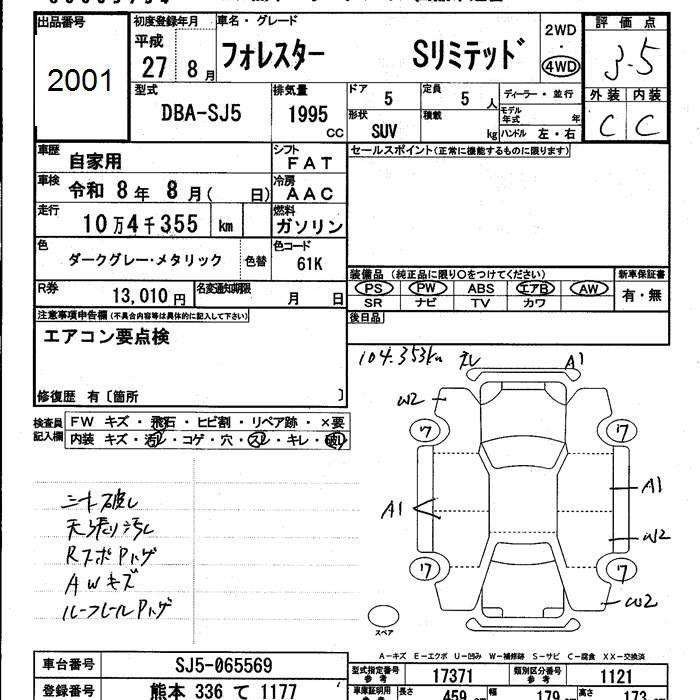 出品番号
2001
初度登録年月
平成
27年 8月
車名・グレード
フォレスター Sリミテッド
2WD
・
4WD
評価点
3.5
外装 内装
C C
型式
DBA-SJ5
排気量
1995
CC
ドア
5
定員
5人
ディーラー・並行
形状
SUV
積載
kg
モデル
年式 年
ハンドル 左・右
車歴
自家用
シフト
FAT
セールスポイント(正常に機能するものに限ります)
車検
令和 8年 8月( 日)
冷房
AAC
走行
10万4千355 km
燃料
ガソリン
色
ダークグレー・メタリック
色替
色コード
61K
装備品 (純正品に限り○をつけてください)
新車保証書
PS PW ABS エアB AW
SR ナビ TV カワ
有・無
R券
13,010円
名変通知期限
月 日
後日品
注意事項申告欄(不具合内容等は具体的に記入して下さい)
エアコン要点検
修復歴 有〔箇所 〕
検査員
記入欄
FW キズ・飛石・ヒビ割・リペア跡・×要
内装 キズ・汚レ・コゲ・穴・スレ・キレ・破レ
104.353km
A1
W2
ワ
ワ
A1
A1
W2
ワ
ワ
W2
シート破レ
天張り汚レ
RスポPハゲ
AWキズ
ルーフレールPハゲ
スペア
A-キズ E-エクボ U-凹み W-補修跡 S-サビ C-腐食 XX-交換済
車台番号
SJ5-065569
型式指定番号
参考
17371
類別区分番号
参考
1121
登録番号
熊本 336 て 1177
車庫証明用
参考
長さ
459 cm
幅
179 cm
高さ
173 cm